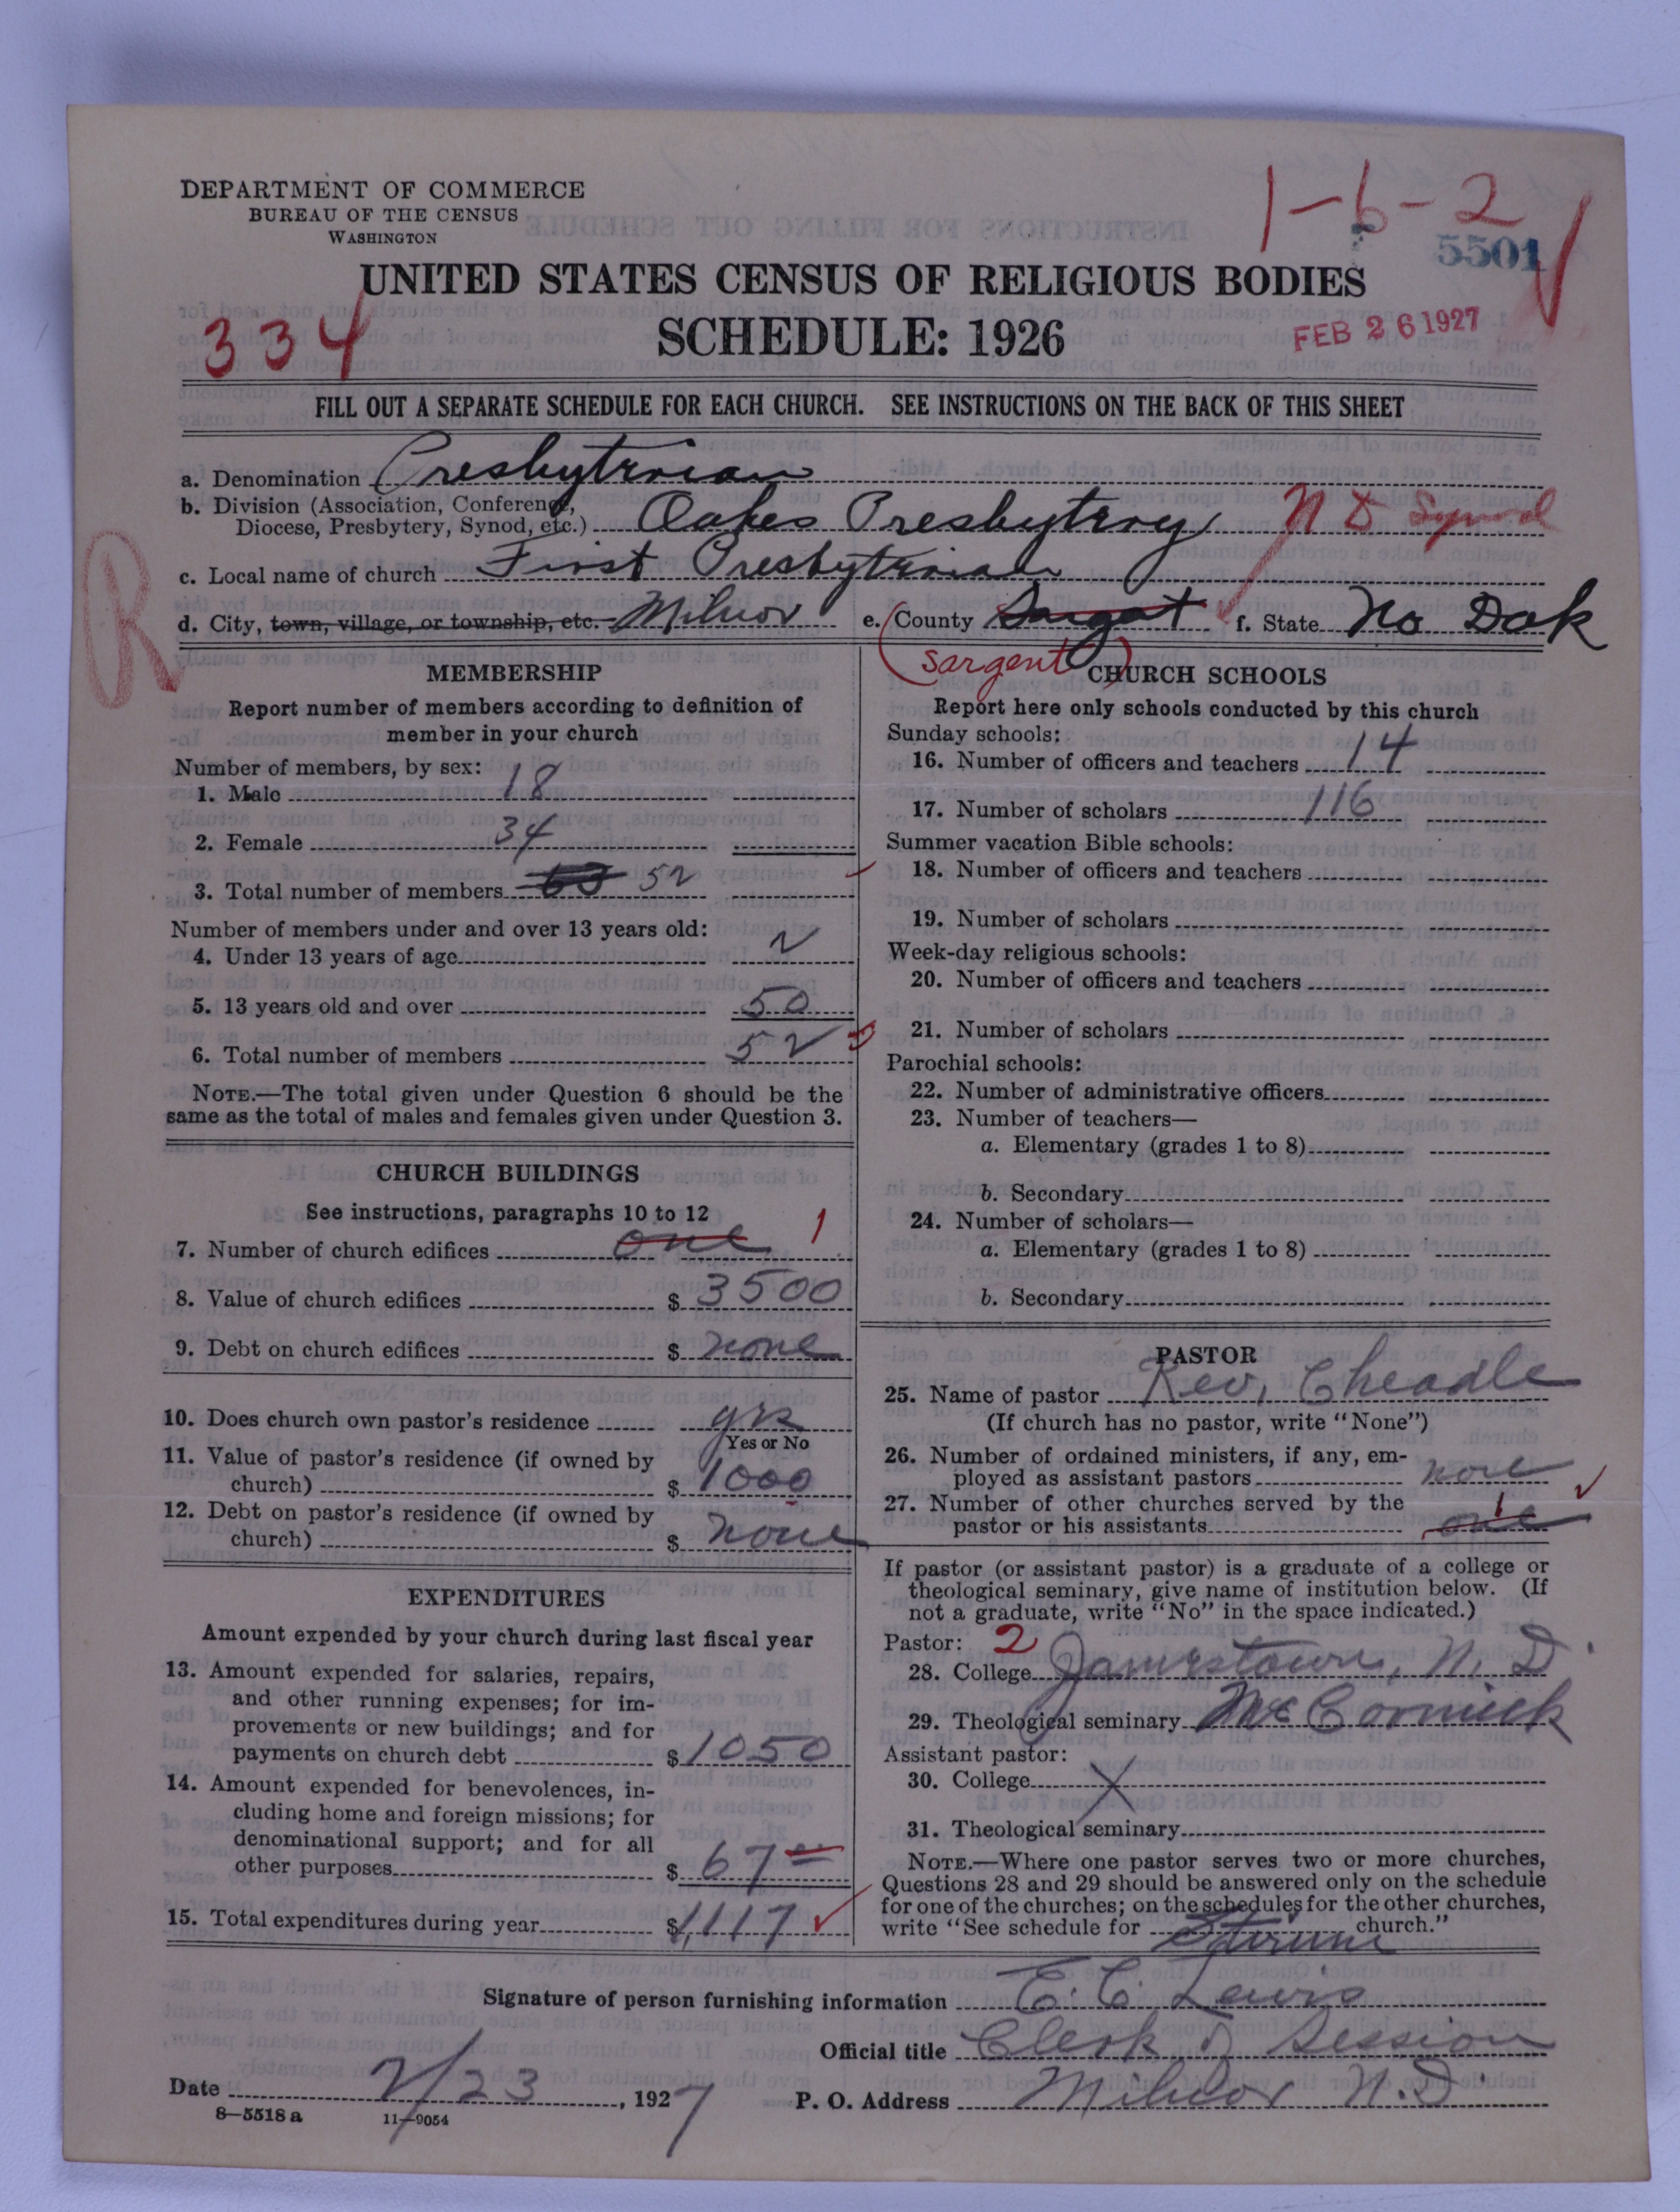 DEPARTMENT OF COMMERCE
BUREAU OF THE CENSUS
WASHINGTON
1-6-2
5501
UNITED STATES CENSUS OF RELIGIOUS BODIES
334
SCHEDULE: 1926
FEB 26 1927
FILL OUT A SEPARATE SCHEDULE FOR EACH CHURCH. SEE INSTRUCTIONS ON THE BACK OF THIS SHEET
a. Denomination Presbyterian
b. Division (Association, Conference,
Diocese, Presbytery, Synod, etc.) Oakes Presbytery N D Synod
c. Local name of church First Presbyterian
d. City, town, village, or township, etc. Milnor e. County Sargat f. State No Dak
R
Sargent
MEMBERSHIP
Report number of members according to definition of
member in your church
Number of members, by sex:
1. Male 18
2. Female 34
3. Total number of members 52
Number of members under and over 13 years old:
4. Under 13 years of age 2
5. 13 years old and over 50
6. Total number of members 52
NOTE.—The total given under Question 6 should be the
same as the total of males and females given under Question 3.
CHURCH BUILDINGS
See instructions, paragraphs 10 to 12
7. Number of church edifices one 1
8. Value of church edifices $ 3500
9. Debt on church edifices $ none
10. Does church own pastor's residence yes
Yes or No
11. Value of pastor's residence (if owned by
church) $ 1000
12. Debt on pastor's residence (if owned by
church) $ none
EXPENDITURES
Amount expended by your church during last fiscal year
13. Amount expended for salaries, repairs,
and other running expenses; for im-
provements or new buildings; and for
payments on church debt $ 1050
14. Amount expended for benevolences, in-
cluding home and foreign missions; for
denominational support; and for all
other purposes $ 67
15. Total expenditures during year $ 1,117
CHURCH SCHOOLS
Report here only schools conducted by this church
Sunday schools:
16. Number of officers and teachers 14
17. Number of scholars 116
Summer vacation Bible schools:
18. Number of officers and teachers
19. Number of scholars
Week-day religious schools:
20. Number of officers and teachers
21. Number of scholars
Parochial schools:
22. Number of administrative officers
23. Number of teachers—
a. Elementary (grades 1 to 8)
b. Secondary
24. Number of scholars—
a. Elementary (grades 1 to 8)
b. Secondary
PASTOR
25. Name of pastor Rev. Cheadle
(If church has no pastor, write "None")
26. Number of ordained ministers, if any, em-
ployed as assistant pastors none
27. Number of other churches served by the
pastor or his assistants one 1
If pastor (or assistant pastor) is a graduate of a college or
theological seminary, give name of institution below. (If
not a graduate, write "No" in the space indicated.)
Pastor: 2
28. College Jamestown, N. D.
29. Theological seminary McCormick
Assistant pastor:
30. College X
31. Theological seminary
NOTE.—Where one pastor serves two or more churches,
Questions 28 and 29 should be answered only on the schedule
for one of the churches; on the schedules for the other churches,
write "See schedule for church."
Signature of person furnishing information E. C. Lewis
Official title Clerk of Session
Date 2/23, 1927 P. O. Address Milnor N.D.
8—5518 a 11—9054